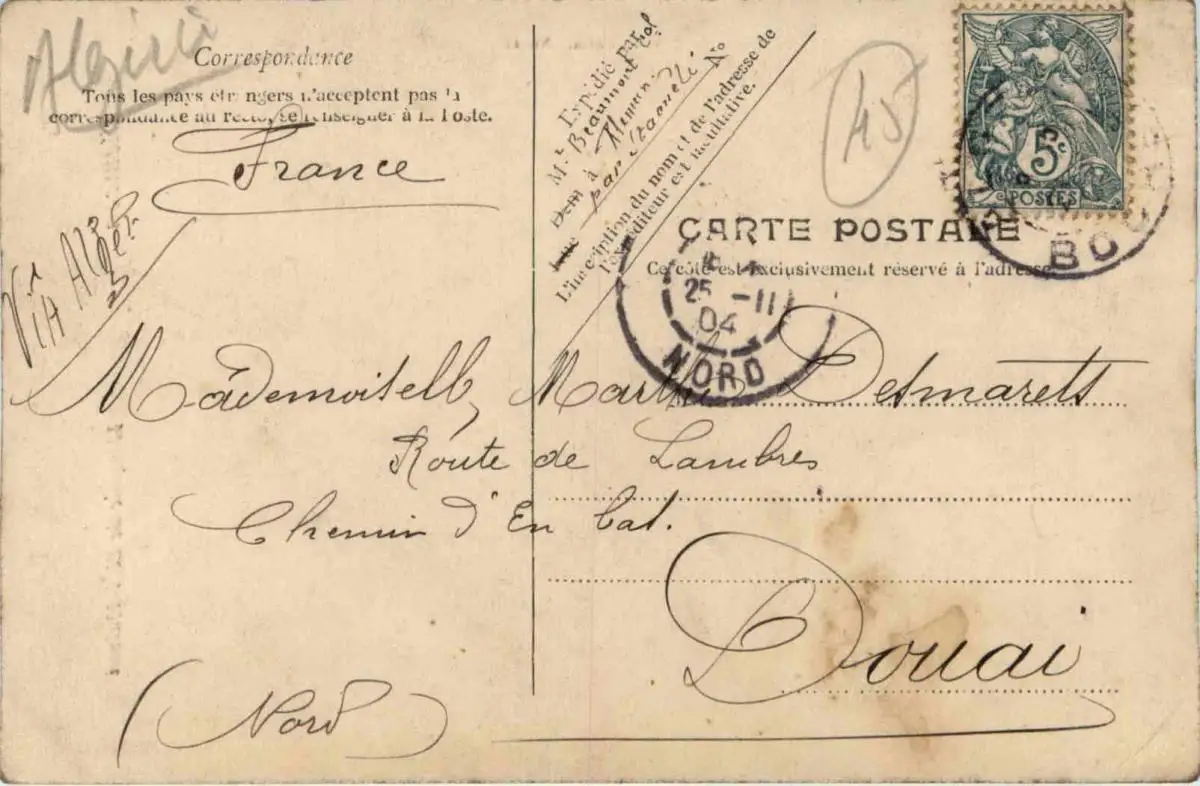 Algérie
Correspondance
Tous les pays étrangers n'acceptent pas la
correspondance au recto, se renseigner à la Poste.
France
Viâ Alger
Expédié par
Mr Beaumont
à
par Staouéli No
L'inscription du nom et de l'adresse de
l'expéditeur est facultative.
45
5c
POSTES
BOU
CARTE POSTALE
Ce côté est exclusivement réservé à l'adresse
25 -11
04
NORD
Mademoiselle Marthe Desmarets
Route de Lambres
Chemin d'En bat.
Douai
(Nord)